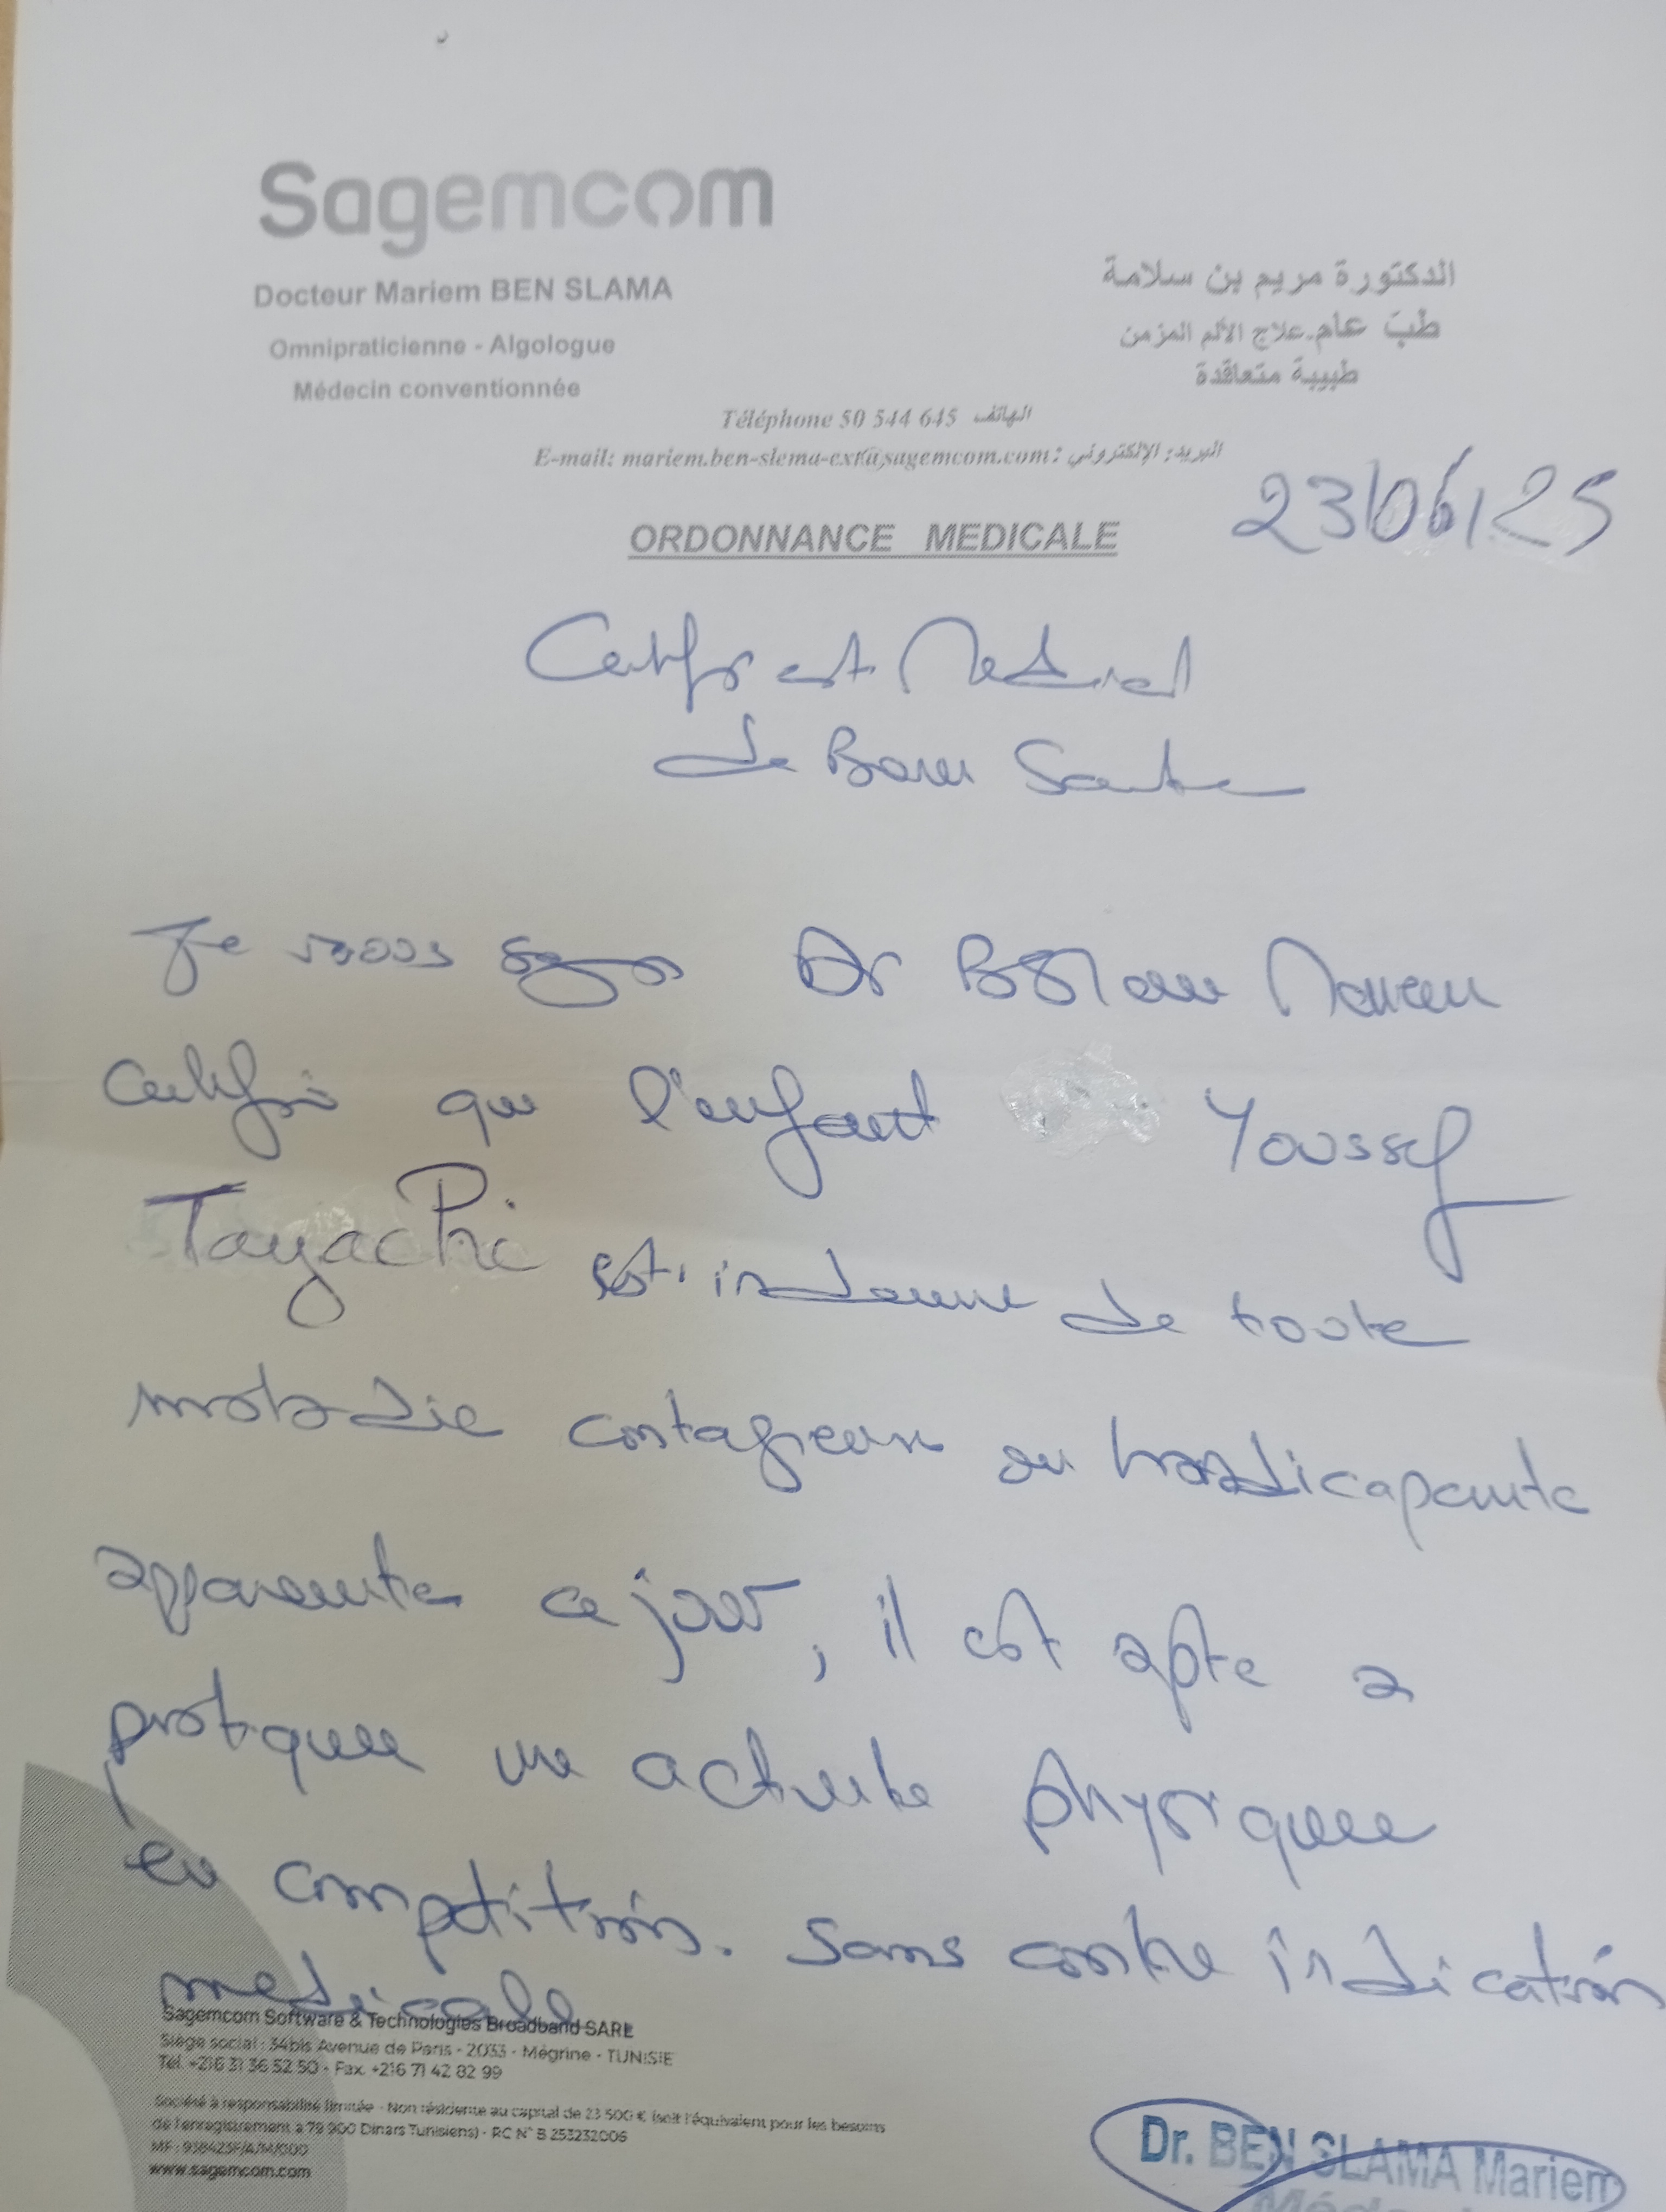 Sagemcom
Docteur Mariem BEN SLAMA
Omnipraticienne - Algologue
Médecin conventionnée
الدكتورة مريم بن سلامة
طبّ عام.علاج الألم المزمن
طبيبة متعاقدة
Téléphone 50 544 645 الهاتف
E-mail: mariem.ben-slema-ext@sagemcom.com : البريد الإلكتروني
ORDONNANCE MEDICALE
23/06/25
Certificat Medical
de Bonne Sante
Je sous signe Dr B Slama Mariem
Certifie que l'enfant Youssef
Tayachi est indemne de toute
maladie contagieuse ou handicapante
apparente ce jour, il est apte a
pratiquer une activite physique
en competition. Sans contre indication
medicale
Sagemcom Software & Technologies Broadband SARL
Siège social : 34bis Avenue de Paris - 2033 - Mégrine - TUNISIE
Tél. +216 31 36 52 50 - Fax. +216 71 42 82 99
Société à responsabilité limitée - Non résidente au capital de 23 500 € (soit l'équivalent pour les besoins
de l'enregistrement à 79 900 Dinars Tunisiens) - RC N° B 253232006
MF : 938423F/A/M/000
www.sagemcom.com
Dr. BEN SLAMA Mariem